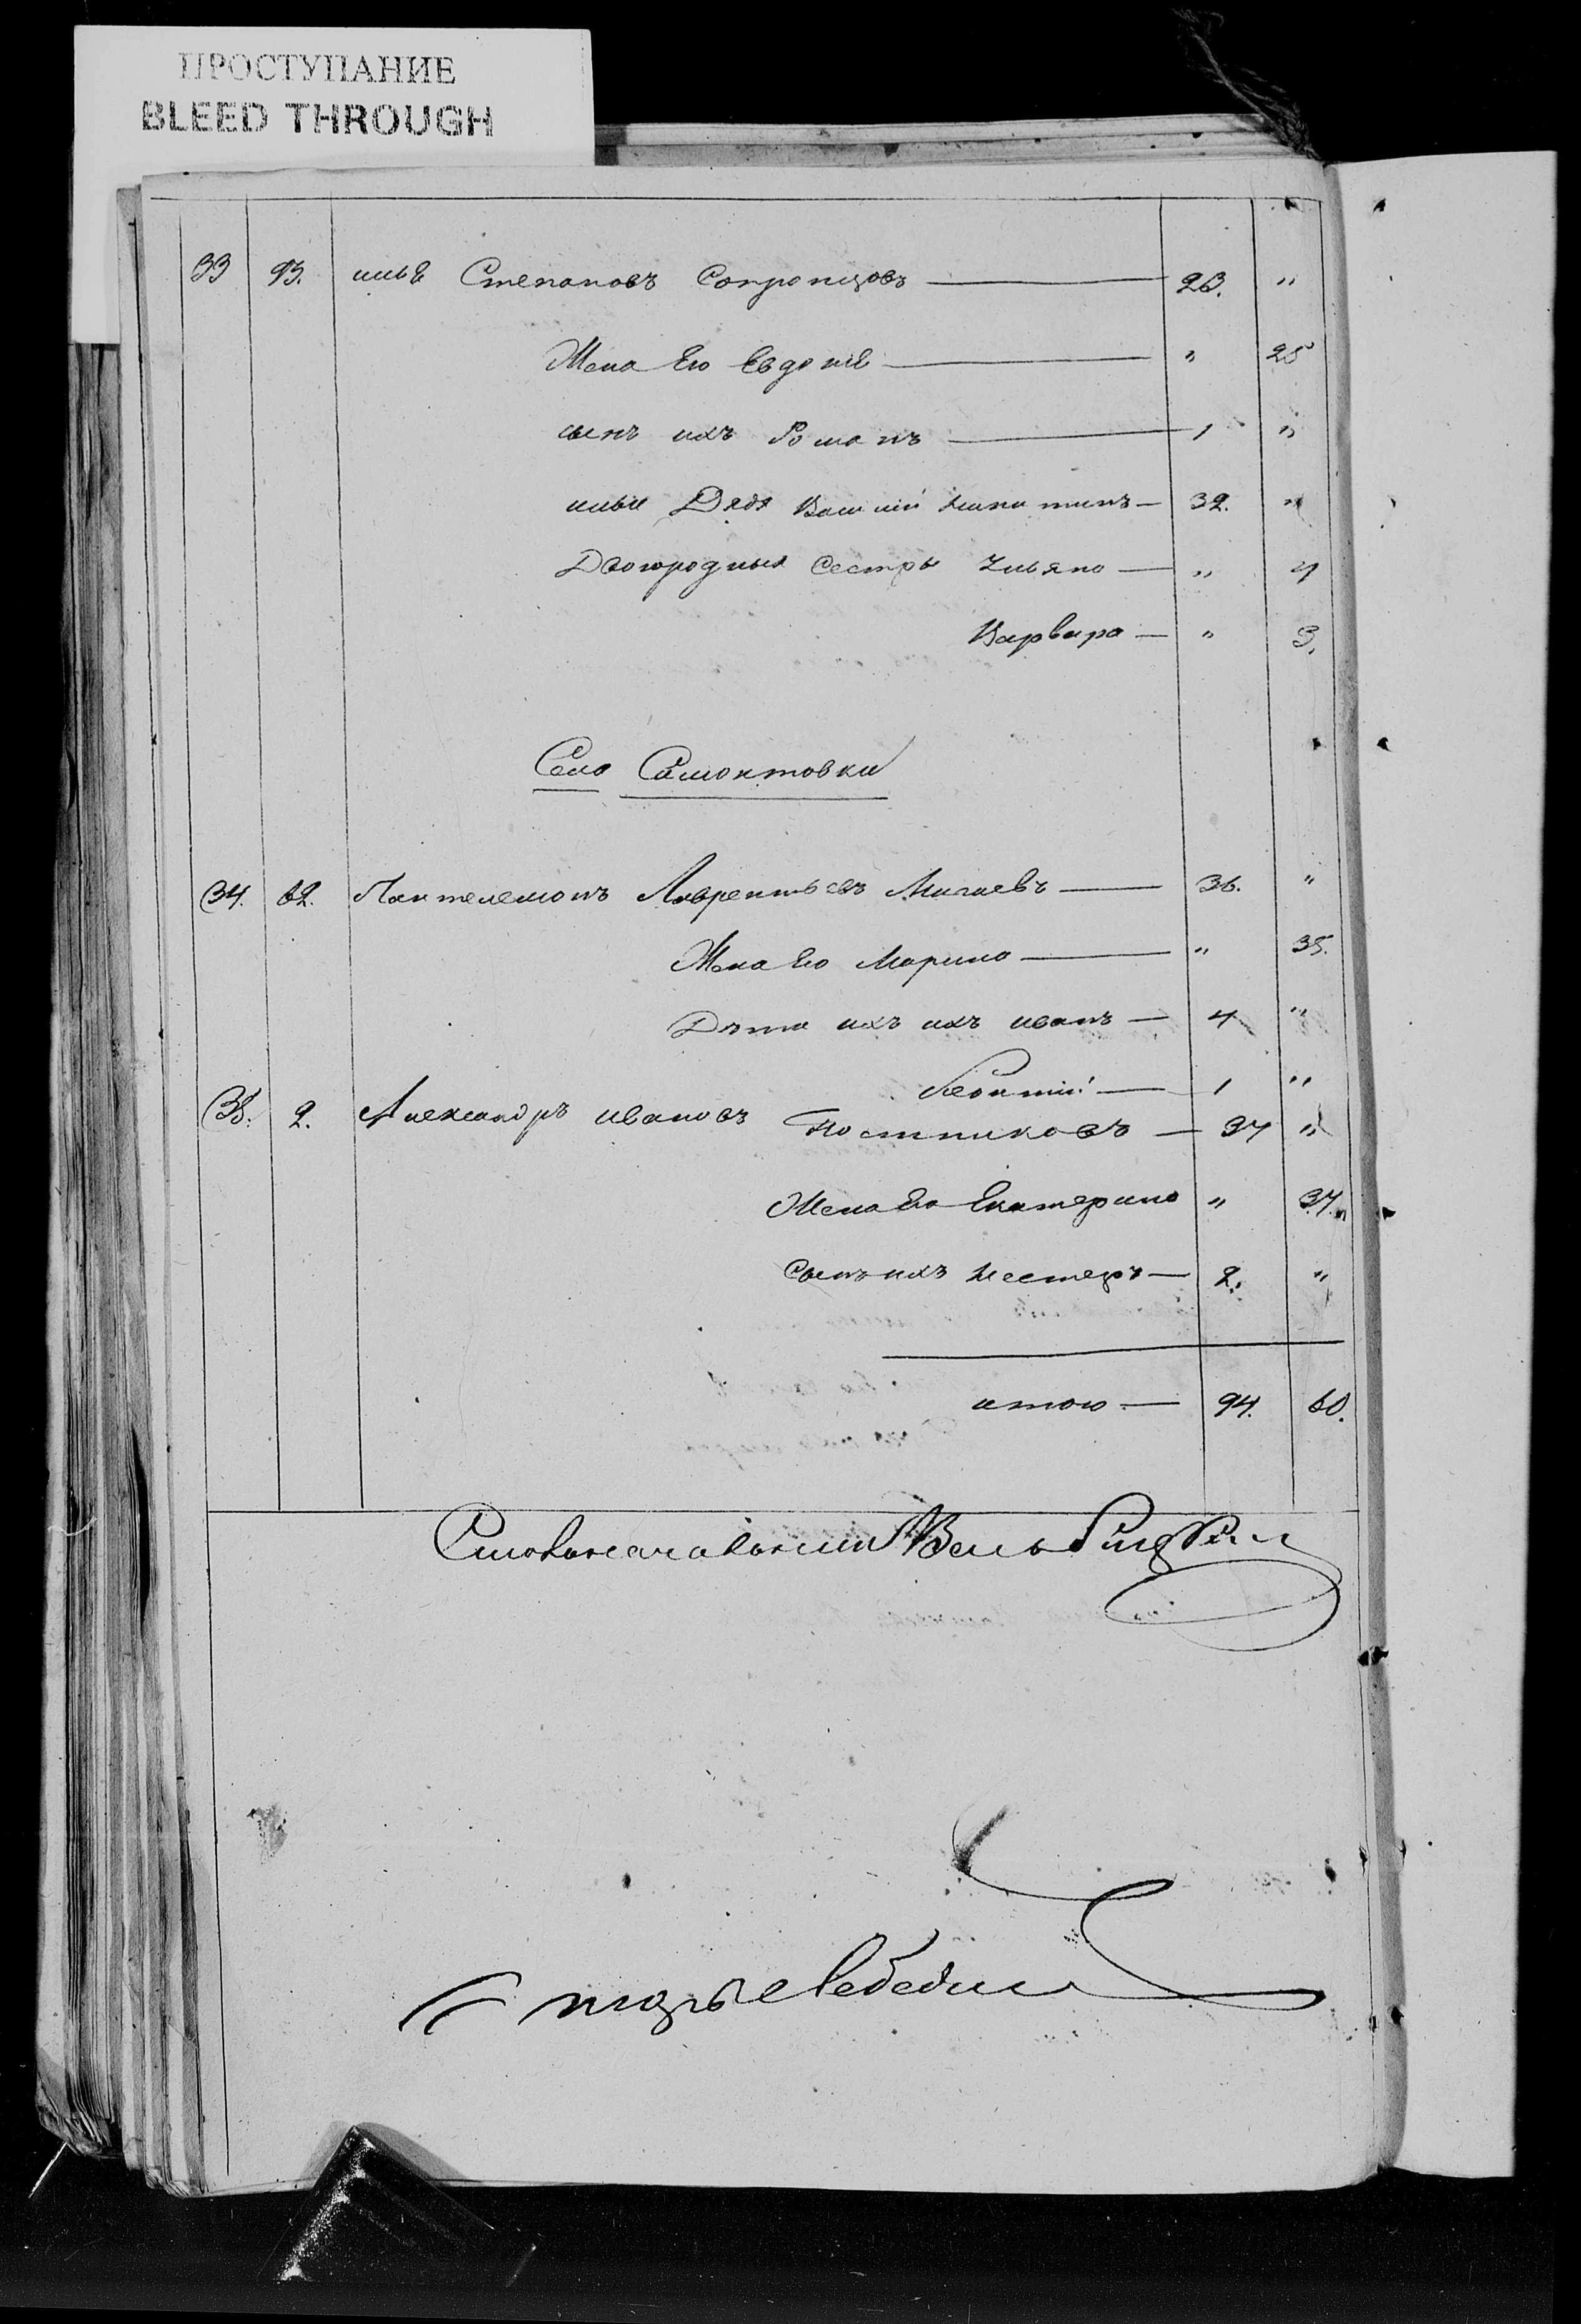 ПРОСТУПАНИЕ
BLEED THROUGH
33 93. илья Степановъ 23. "
Жена Его Евдокия " 25
сынъ ихъ Романъ 1 "
ильи Дядя Василий Никитинъ 32. "
Двоюродныя Сестры Ульяна " 4
Варвара " 3.
Село Самонтовки
34. 62. Пантелемонъ Лаврентьевъ Мигаевъ 36. "
Жена Его Марина " 35.
Дѣти ихъ ихъ иванъ 4 "
Леонтий 1 "
35. 2. Александръ ивановъ Постниковъ 37 "
Жена Его Екатерина " 37.
Сынъ ихъ Нестеръ 2. "
итого 94. 60.